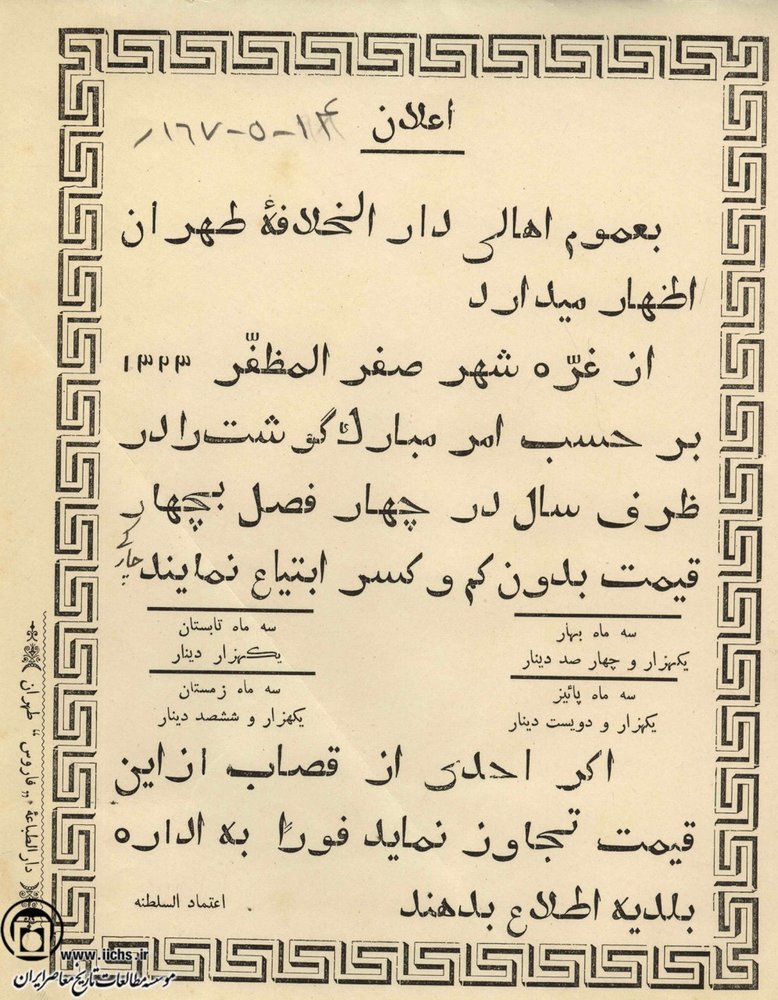 اعلان
۱۶۷-۵-۱۴
بعموم اهالی دار الخلافهٔ طهران
اظهار میدارد
از غرّه شهر صفر المظفّر ۱۳۲۳
بر حسب امر مبارک گوشت را در
ظرف سال در چهار فصل بچهار
قیمت بدون کم و کسر ابتیاع نمایند
سه ماه بهار
یکهزار و چهار صد دینار
سه ماه تابستان
یکهزار دینار
سه ماه پائیز
یکهزار و دویست دینار
سه ماه زمستان
یکهزار و ششصد دینار
اگر احدی از قصاب ازاین
قیمت تجاوز نماید فوراً به اداره
بلدیه اطلاع بدهند
اعتماد السلطنه
دار الطباعهٔ „فاروس“ طهران
www.iichs.ir
موسسه مطالعات تاریخ معاصر ایران